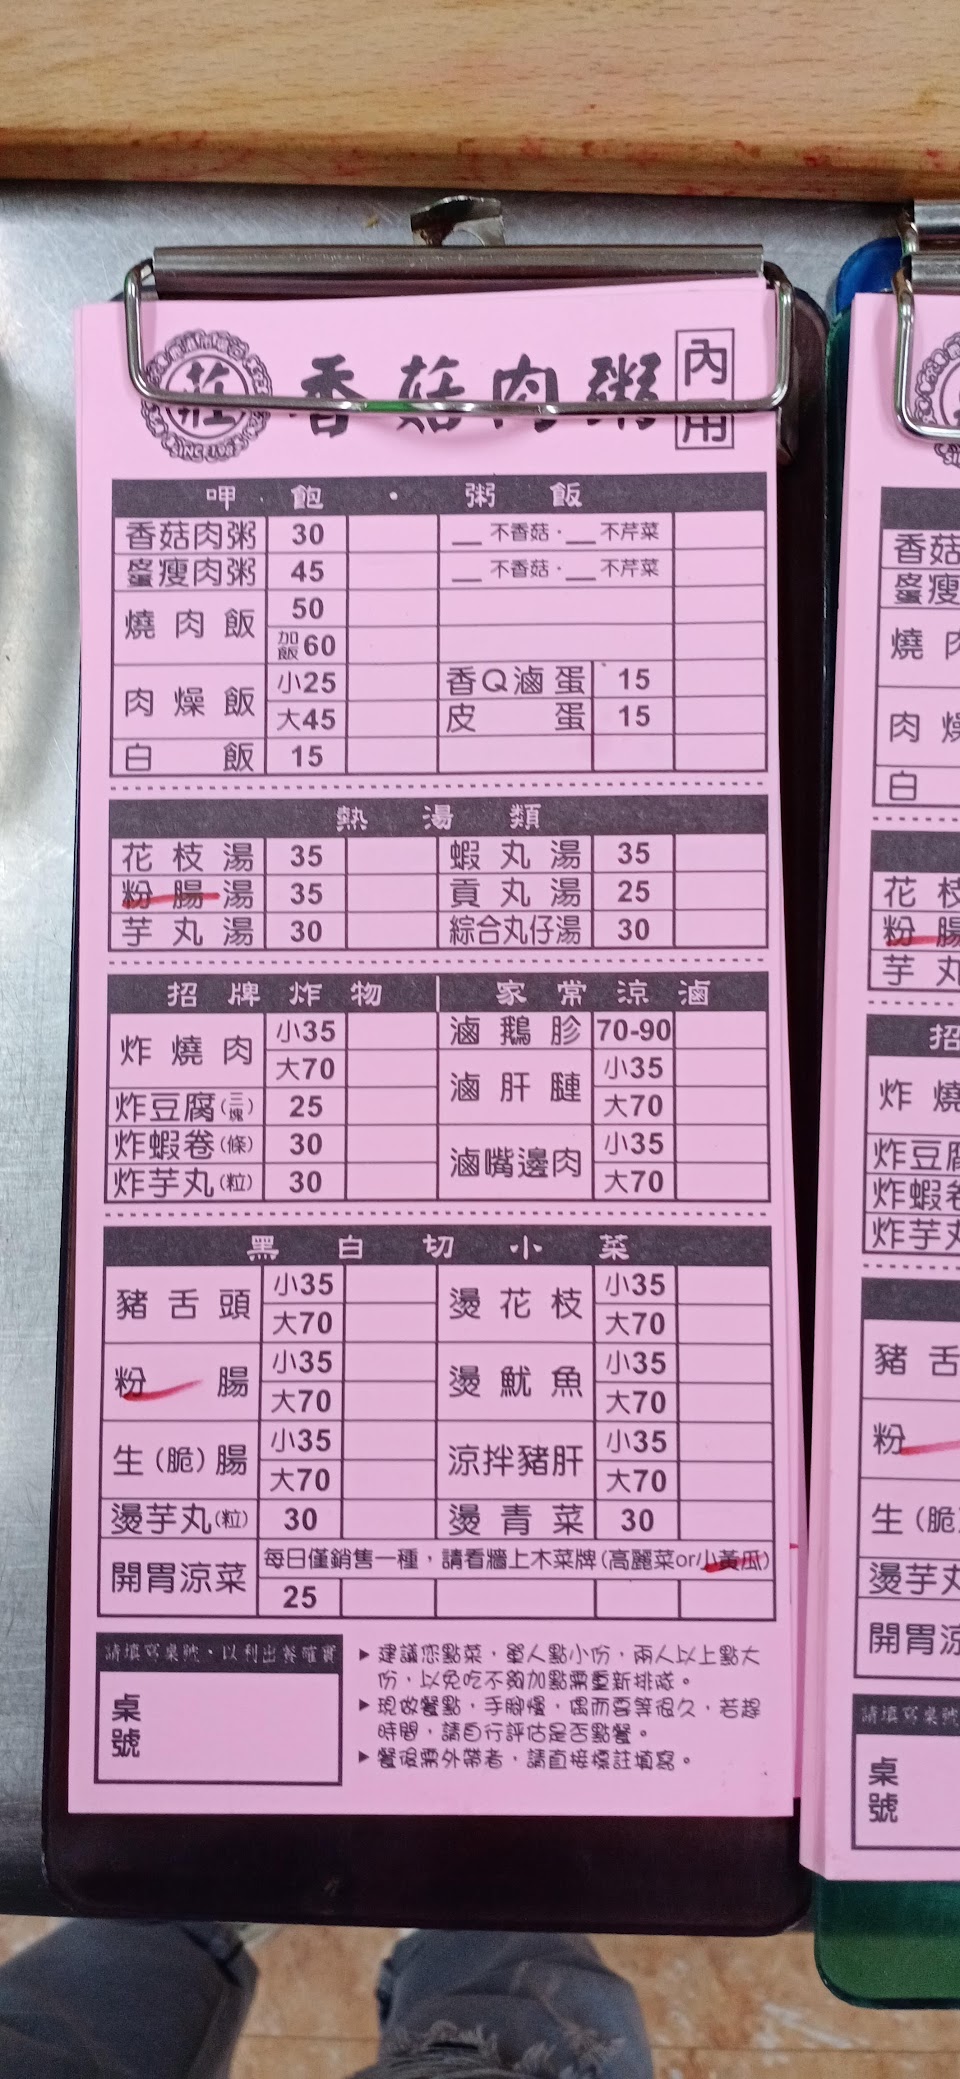 莊
香菇肉粥
內用
呷 飽 · 粥 飯
香菇肉粥 30 __不香菇·__不芹菜
瘦肉粥 45 __不香菇·__不芹菜
燒肉飯 50
加飯60
肉燥飯 小25 香Q滷蛋 15
大45 皮蛋 15
白飯 15
熱 湯 類
花枝湯 35 蝦丸湯 35
粉腸湯 35 貢丸湯 25
芋丸湯 30 綜合丸仔湯 30
招牌炸物 家常涼滷
炸燒肉 小35 滷鵝胗 70-90
大70 滷肝腱 小35
炸豆腐(三塊) 25 大70
炸蝦卷(條) 30 滷嘴邊肉 小35
炸芋丸(粒) 30 大70
黑白切小菜
豬舌頭 小35 燙花枝 小35
大70 大70
粉腸 小35 燙魷魚 小35
大70 大70
生(脆)腸 小35 涼拌豬肝 小35
大70 大70
燙芋丸(粒) 30 燙青菜 30
開胃涼菜 每日僅銷售一種，請看牆上木菜牌(高麗菜or小黃瓜)
25
請填寫桌號·以利出餐確實
桌號
▶建議您點菜，單人點小份，兩人以上點大
份，以免吃不夠加點需重新排隊。
▶現做餐點，手腳慢，偶而要等很久，若趕
時間，請自行評估是否點餐。
▶餐後需外帶者，請直接標註填寫。
香菇
瘦
燒
肉
白
花枝
粉腸
芋丸
招
炸燒
炸豆腐
炸蝦卷
炸芋丸
豬舌
粉
生(脆)
燙芋丸
開胃涼
請填寫桌號
桌號